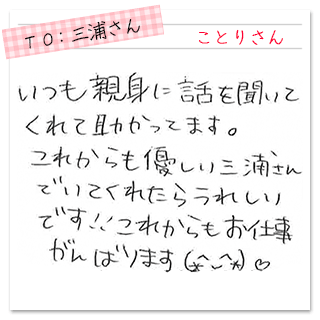 TO:三浦さん
ことりさん
いつも親身に話を聞いて
くれて助かってます。
これからも優しい三浦さん
でいてくれたらうれしい
です!!これからもお仕事
がんばります(*^^*)♡